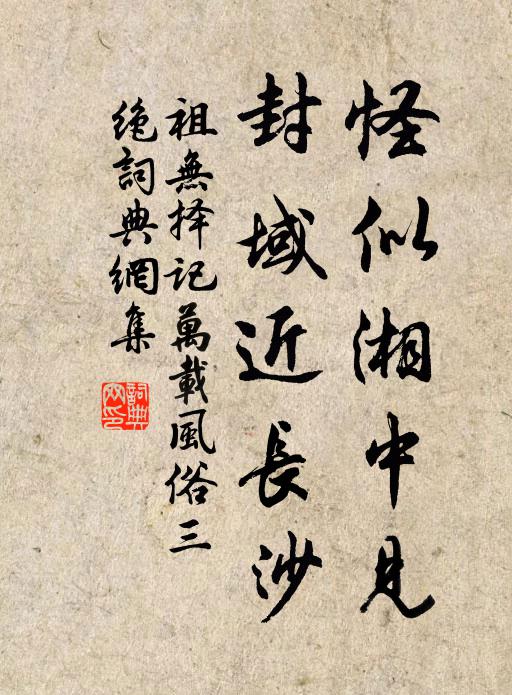 怪似湘中見
封域近長沙
祖無择記萬載風俗三
絶詞典網集
詞典
网印